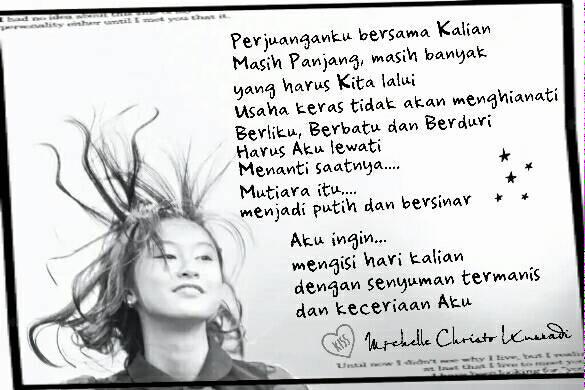 I had no idea about this side of
personality either until I met you that it.
Perjuanganku bersama Kalian
Masih Panjang, masih banyak
yang harus Kita lalui
Usaha keras tidak akan menghianati
Berliku, Berbatu dan Berduri
Harus Aku lewati
Menanti saatnya....
Mutiara itu....
menjadi putih dan bersinar
Aku ingin...
mengisi hari kalian
dengan senyuman termanis
dan keceriaan Aku
KISS
Michelle Christo Kusnadi
Until now I didn't see why I live, but I really
at last that I live to meet you